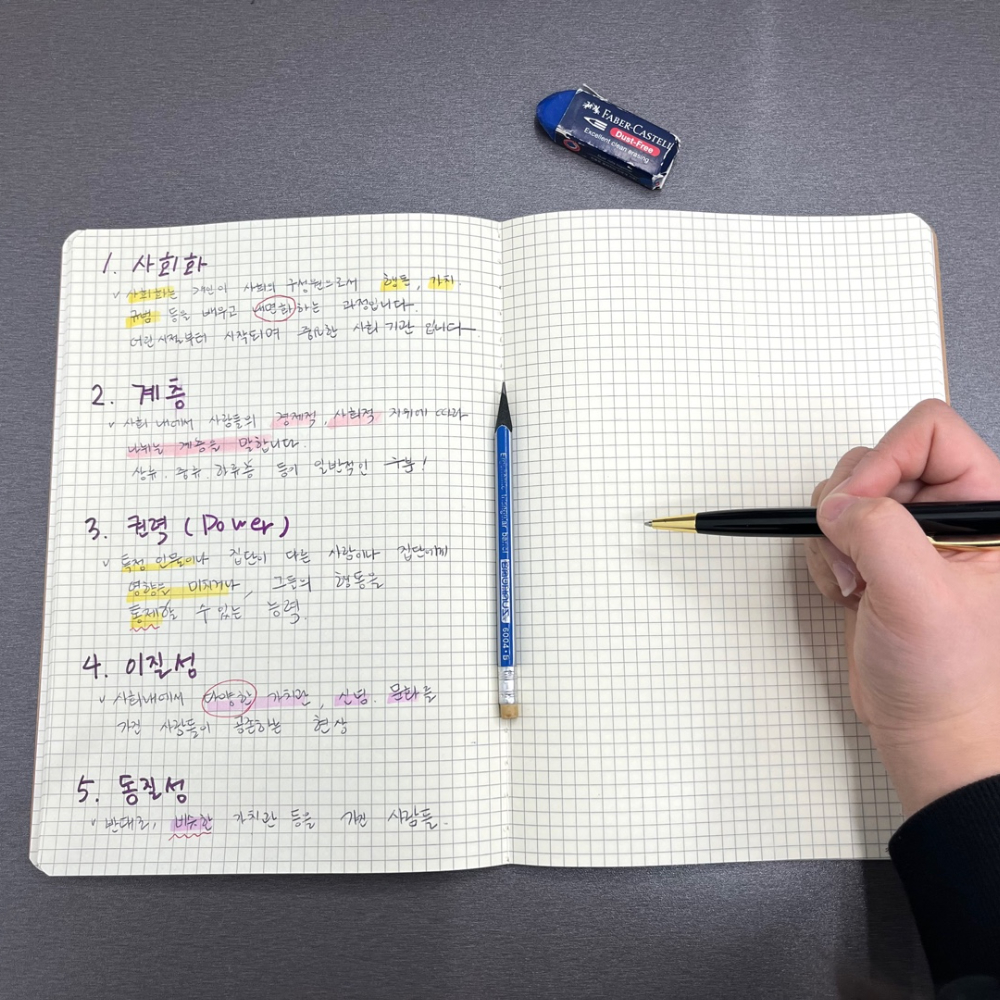 FABER-CASTELL
Dust-Free
Excellent clean erasing
1. 사회화
✓ 사회화는 개인이 사회의 구성원으로서 행동, 가치.
규범 등을 배우고 내면화하는 과정입니다.
어린시절부터 시작되며 중요한 사회 기관 입니다
2. 계층
✓ 사회 내에서 사람들의 경제적, 사회적 지위에 따라
나뉘는 계층을 말합니다.
상류. 중류. 하류층 등이 일반적인 구분!
3. 권력 (Power)
✓ 특정 인물이나 집단이 다른 사람이나 집단에게
영향을 미치거나, 그들의 행동을
통제할 수 있는 능력.
4. 이질성
✓ 사회내에서 다양한 가치관, 신념. 문화를
가진 사람들이 공존하는 현상
5. 동질성
✓ 반대로, 비슷한 가치관 등을 가진 사람들.
6004·B